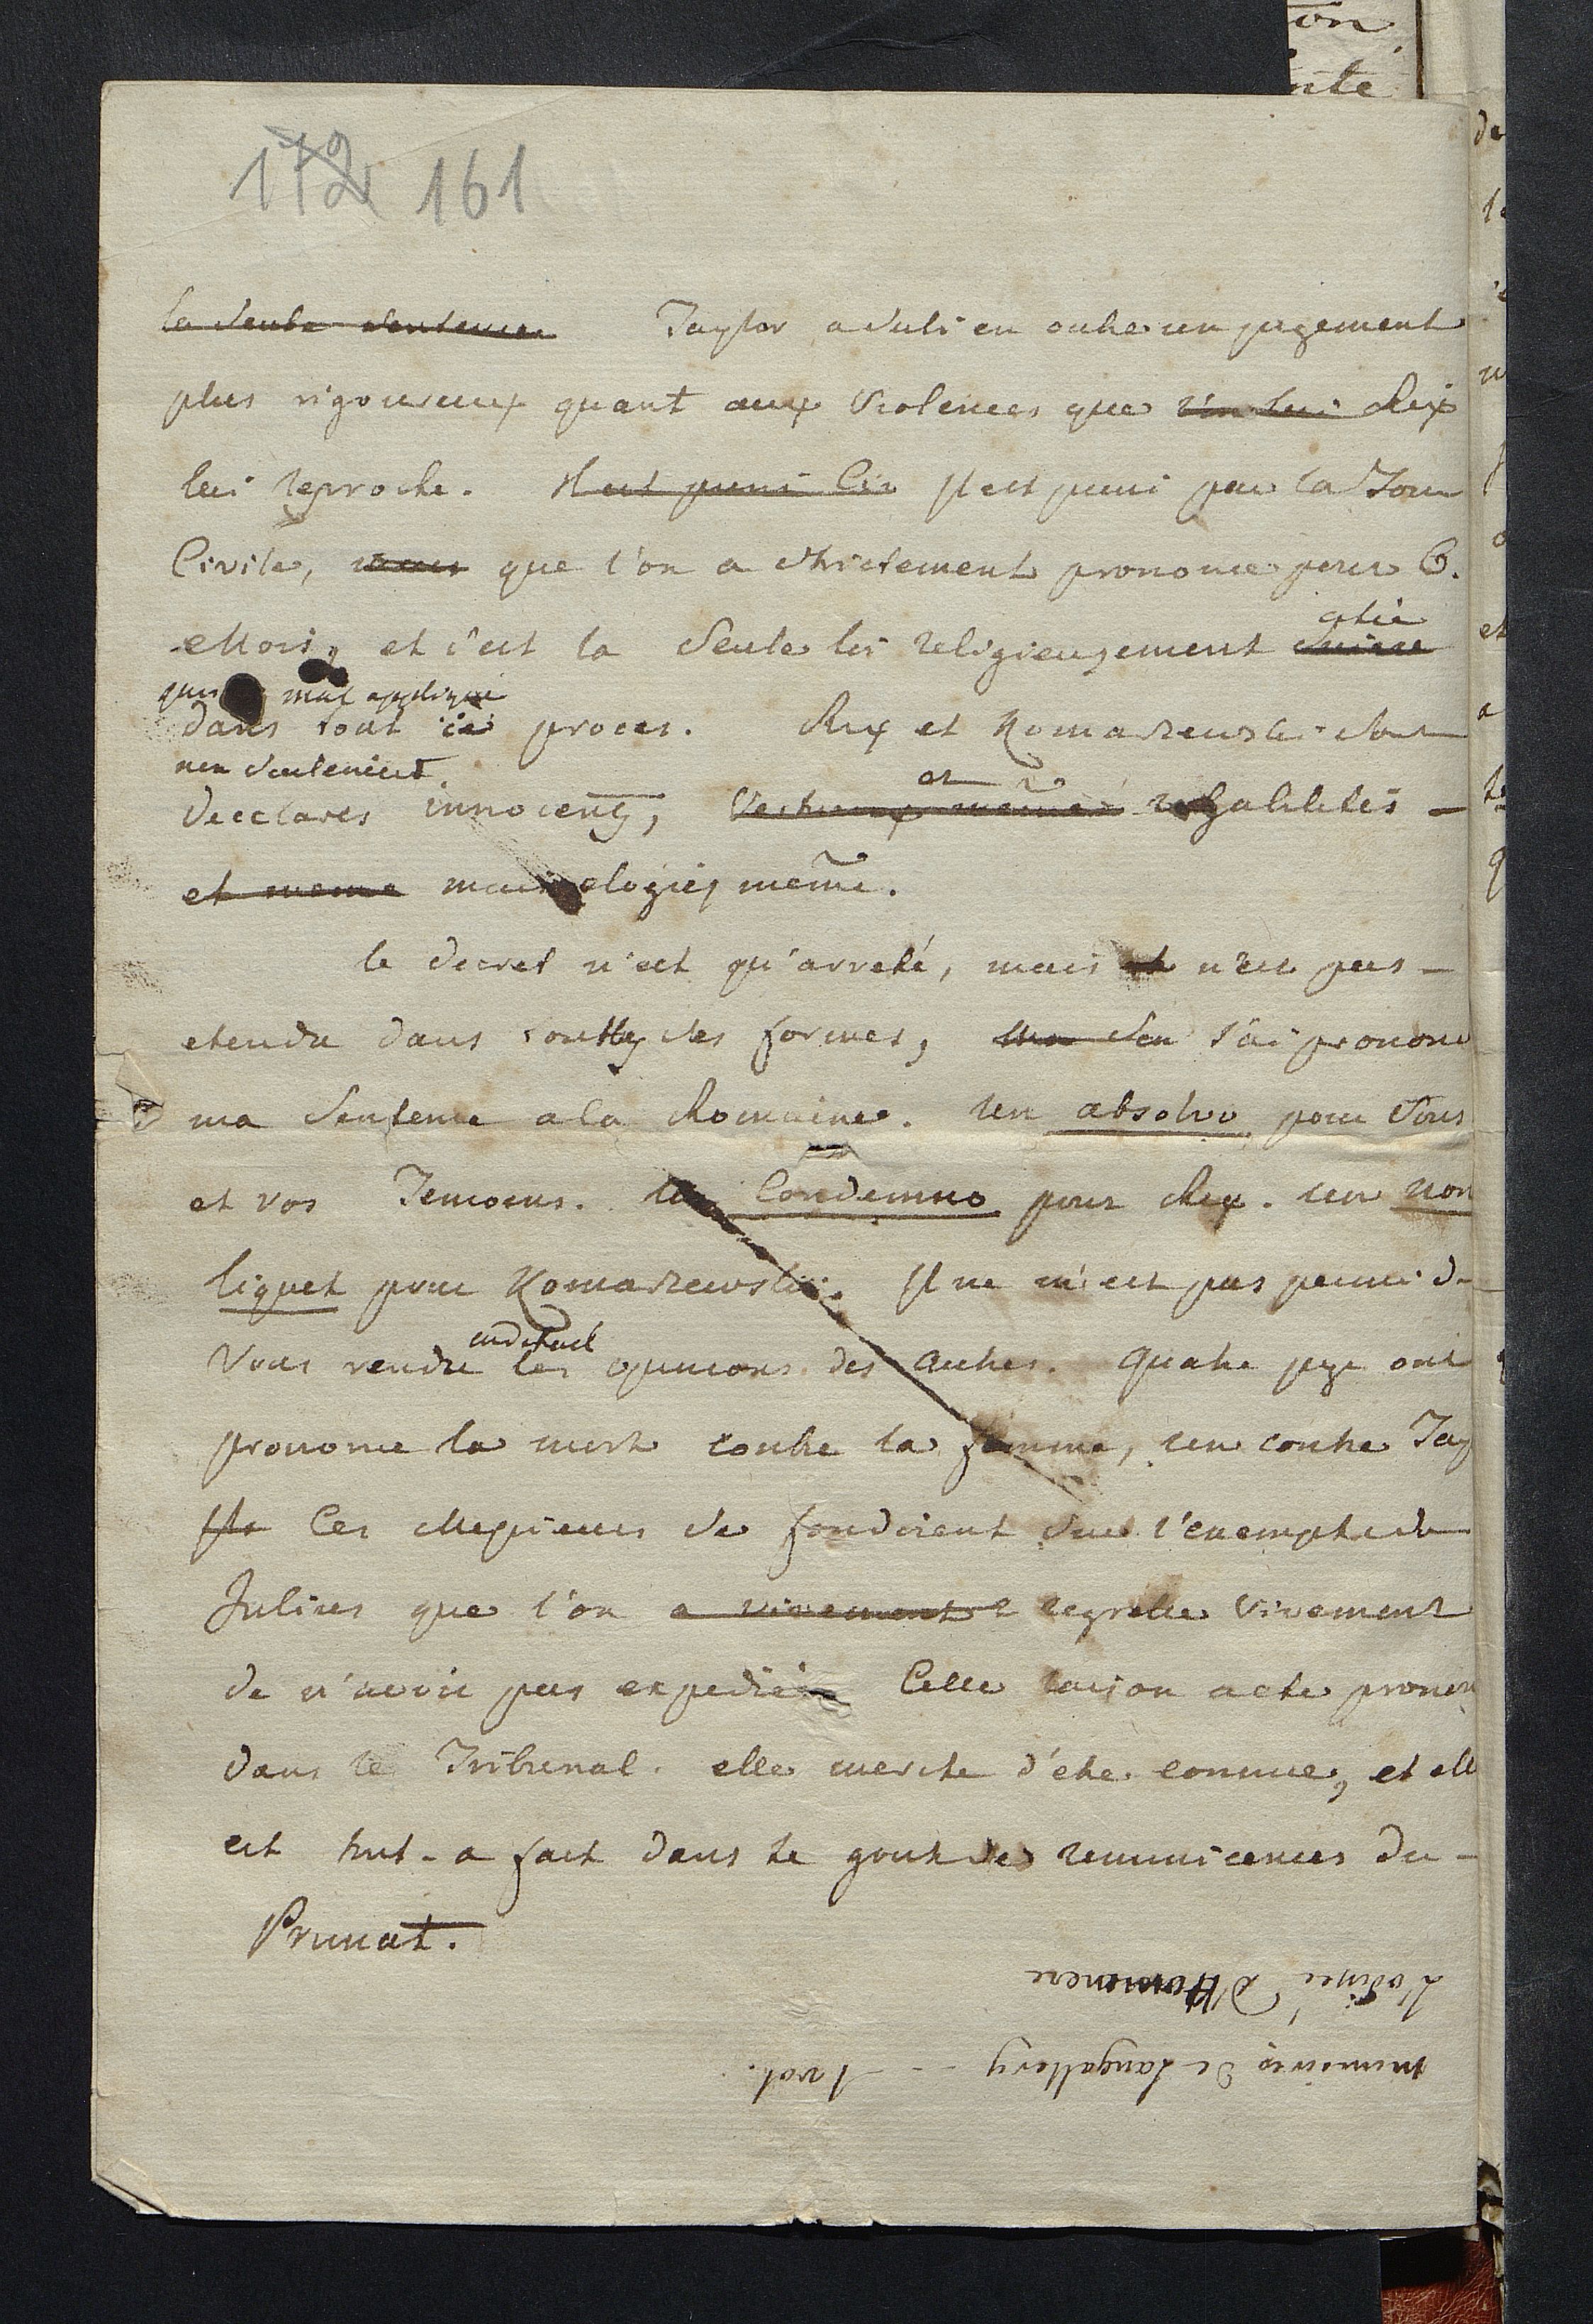 172 161
la seule sentence Taylor a subi en outre un jugement
plus rigoureux quant aux Violences que l'on lui Rix
lui reproche. Il est puni Civ Il est puni par la Tour
Civile, mais que l'on a strictement prononcé pour 6.
Mois, et c'est la seule loi religieusement suivie
qui mal appliqué
dans tout ce proces. Rix et Komarzewski sont
non seulement
declarés innocens, Vertueux meme rehabilités —
et meme mais elogiés même.
le decret n'est qu'arreté, mais et n'est pas —
etendu dans toutes ses formes, j'ai prononcé
ma Sentence a la Romaine. un absolvo pour Vous
et vos Temoins. un Condemno pour Rix. un non
liquet pour Komarzewski. Il ne m'est pas permi de
Vous rendre les opinions des autres. quatre juge ont
prononcé la mort contre la femme, un contre Tay
Ils Ces Messieurs se fondoient sur l'exemple de
Julius que l'on a vivement regrette vivement
de n'avoir pas expedié. Cette raison a eté pronon
dans le Tribunal. elle merite d'etre connue, et elle
est tout-a fait dans le gout des reminicences du —
Primat.
L'odissé d'Homere
memoires de Langallery - - 1 vol.
on
nte